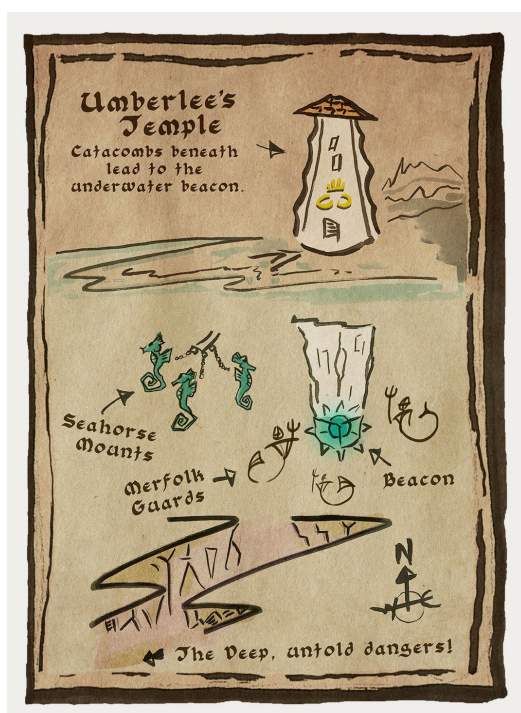 Umberlee's
Temple
Catacombs beneath
lead to the
underwater beacon.
Seahorse
Mounts
Merfolk
Guards
Beacon
N
W E
The Deep, untold dangers!